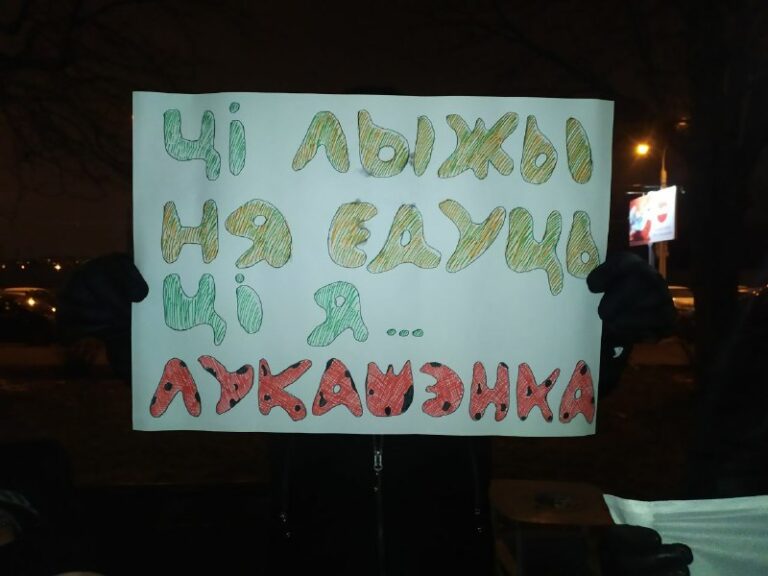 ЦІ ЛЫЖЫ
НЯ ЕДУЦЬ
ЦІ Я...
ЛУКАШЭНКА